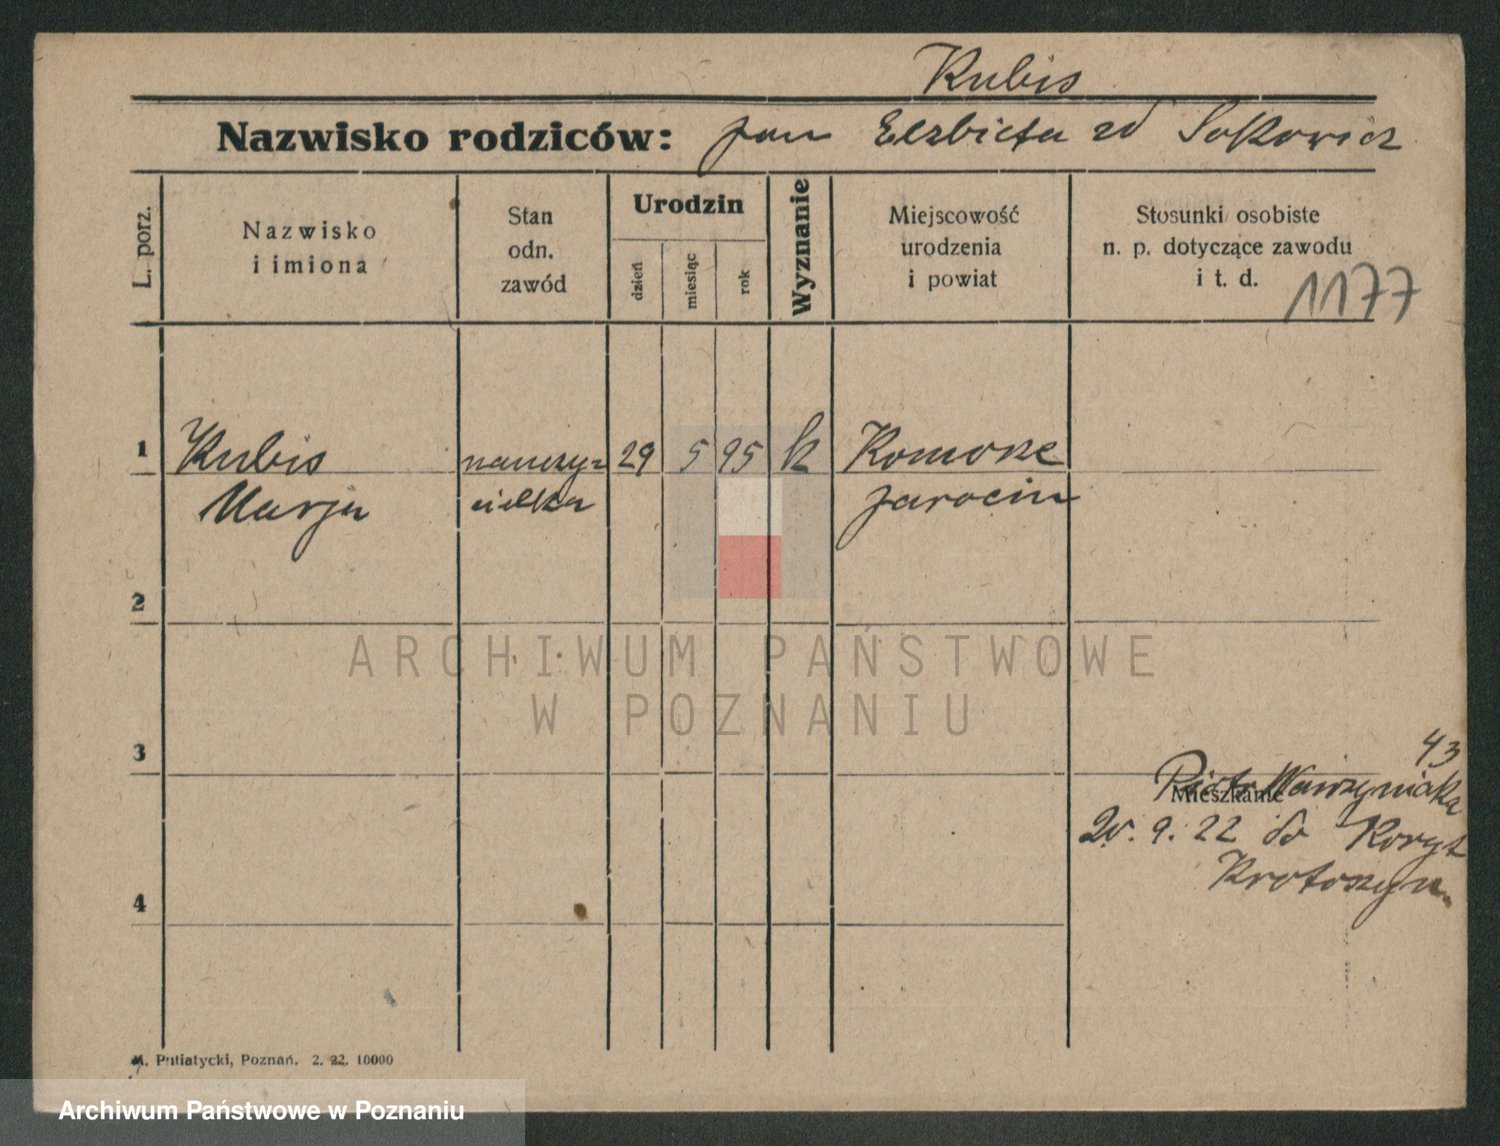 Kubis
Nazwisko rodziców: Jan Elzbieta zd Sokowicz
L. porz.
Nazwisko
i imiona
Stan
odn.
zawód
Urodzin
dzień
miesiąc
rok
Wyznanie
Miejscowość
urodzenia
i powiat
Stosunki osobiste
n. p. dotyczące zawodu
i t. d.
1177
1 Kubis nauczy- 29 5 95 k Komorze
Marja cielka Jarocin
2
ARCHIWUM PAŃSTWOWE
W POZNANIU
3
43
Piotr Wawrzyniaka
Mieszkanie
20. 9. 22 do Koryt
Krotoszyn.
4
M. Putiatycki, Poznań. 2. 22. 10000
Archiwum Państwowe w Poznaniu